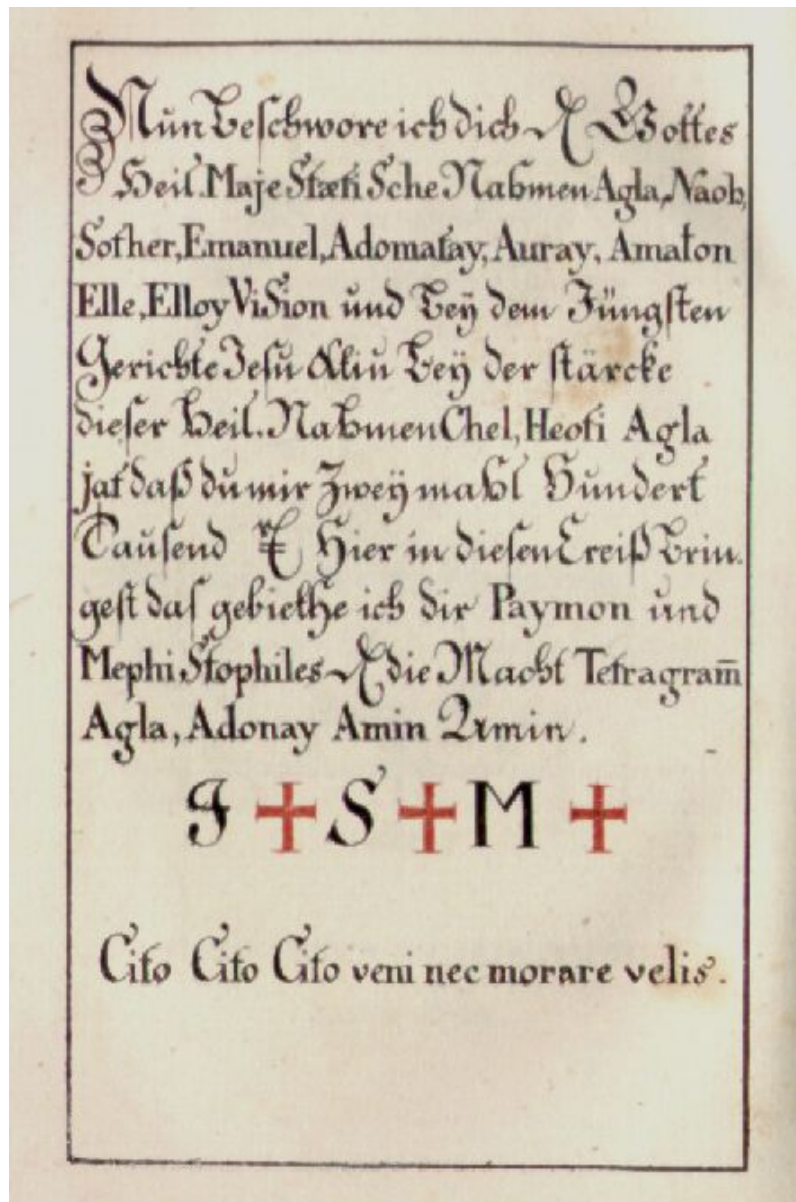 Nun beschwore ich dich Gottes
Heil. Majestætische Nahmen Agla, Naob,
Sother, Emanuel, Adomatay, Auray, Amaton
Elle, Elloy ViSion und beÿ dem Jüngsten
Gerichte Jesu beÿ der stärcke
dieser Heil. Nahmen Chel, Heoti Agla
jat daß du mir Zweÿ mahl Hundert
Tausend Hier in diesen Creiß brin.
gest das gebiethe ich dir Paymon und
MephiStophiles die Macht Tetragram̄
Agla, Adonay Amin Amin.
J + S + M +
Cito Cito Cito veni nec morare velis.